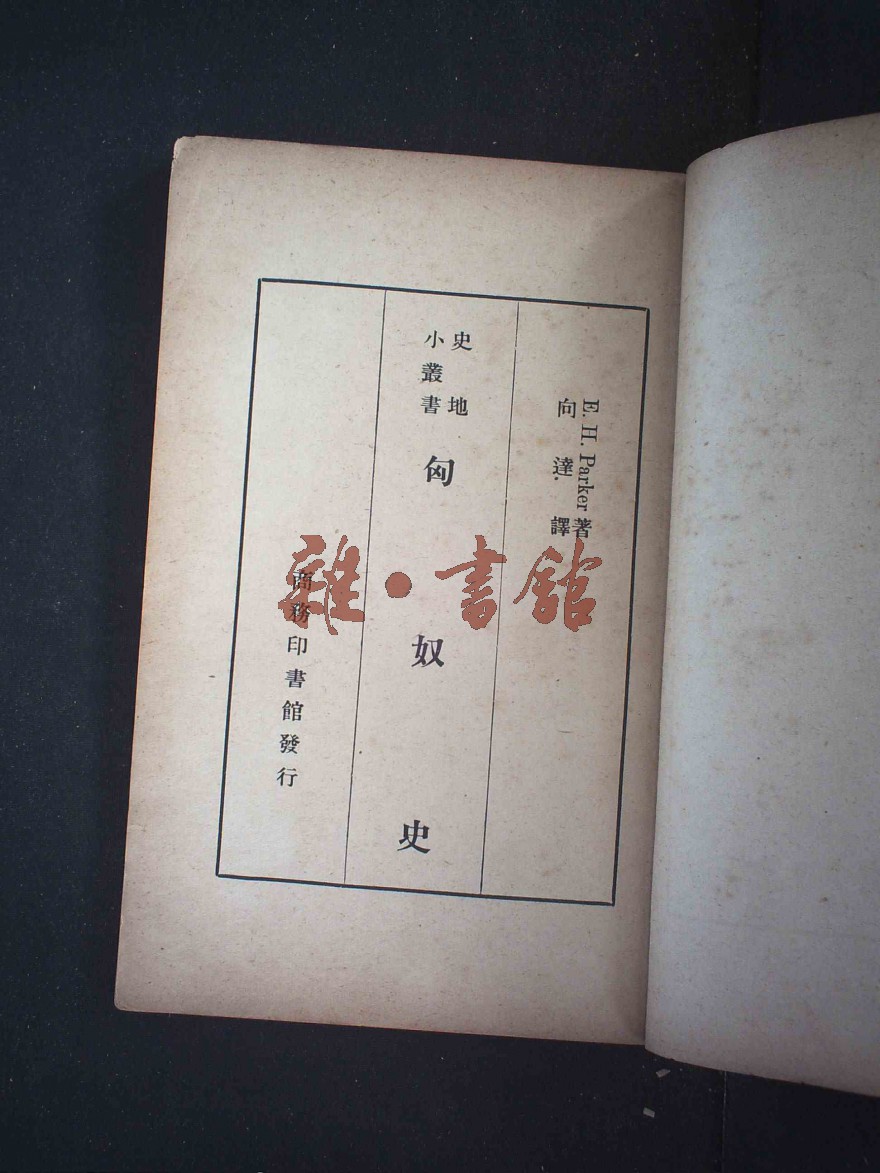 E. H. Parker 著
向達譯
史地
小叢書
匈奴史
商務印書館發行
雜·書館